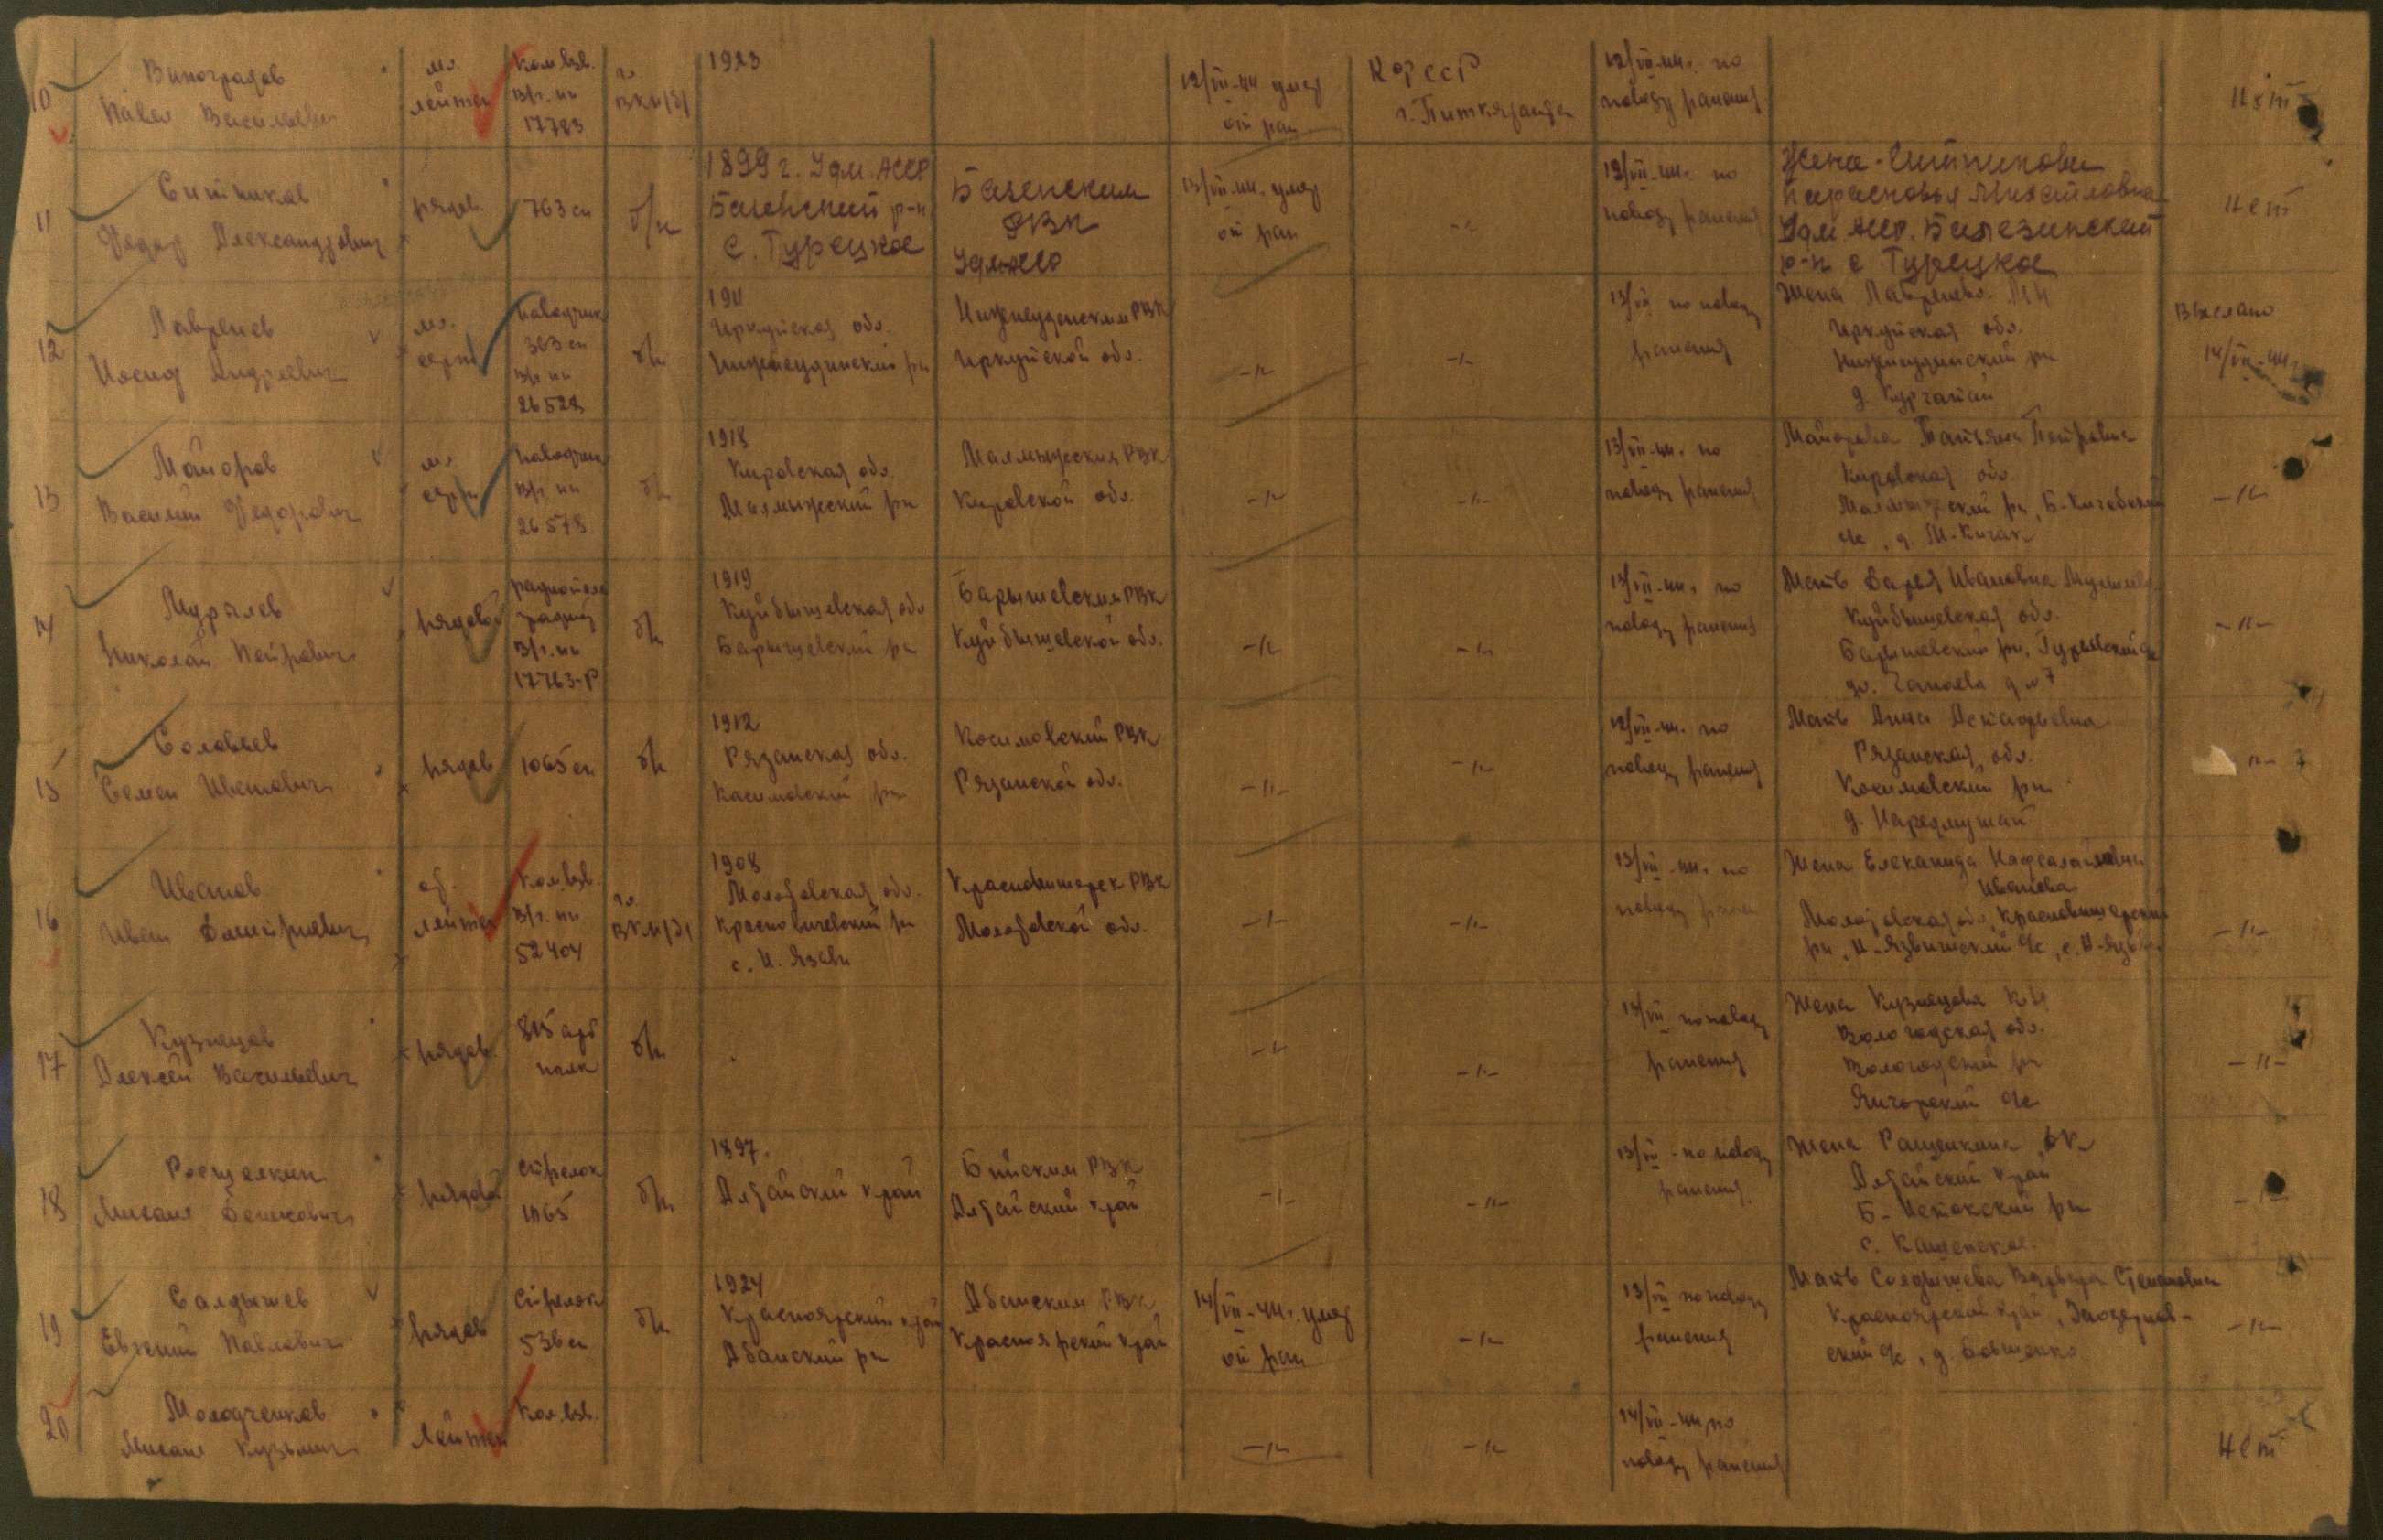 10
Виноградов
Павел Васильевич
мл.
лейтен
Ком.взв.
В/ч. пп
17783
чл.
ВКП/б/
1923
12/VII-44 умер
от ран
КФССР
г. Питкяранта
12/VII-44г. по
поводу ранения
нет
11
Ситников
Федор Александрович
рядов.
763 сп
б/п
1899 г. Удм. АССР
р-н
с. Турецкое
РВК
Удм АССР
13/VII-44г. умер
от ран
-"-
12/VII-44г. по
поводу ранения
Жена - Ситникова
Парасковья Михайловна
Удм. АССР. Балезинский
р-н с Турецкое
нет
12
Лавренев
Иосиф Андреевич
мл.
серж
наводчик
363 сп
В/ч пп
26528
б/п
1911
Иркутская обл.
Нижнеудинский рн
Нижнеудинским РВК
Иркутской обл.
-"-
-"-
13/VII по поводу
ранения
Жена Лавренева
Иркутская обл.
Нижнеудинский рн
д.
Выслано
14/VII-44г.
13
Майоров
Василий Федорович
мл
серж
наводчик
В/ч. пп
26578
б/п
1918
Кировская обл.
Малмыжский рн
Малмыжским РВК
Кировской обл.
-"-
-"-
13/VII-44г. по
поводу ранения
Майорова Татьяна Петровна
Кировская обл.
Малмыжский рн, Б-Китякский
с/с, д. М-Китяк
-"-
14
Николай Петрович
рядовой
В/ч. пп
17763-Р
б/п
1919
Куйбышевская обл
Барышевский рн
Барышевским РВК
Куйбышевской обл.
-"-
-"-
13/VII-44г. по
поводу ранения
Мать Дарья Ивановна
Куйбышевская обл.
Барышевский рн, Гурьевский с/с
ул. Чапаева д №7
-"-
15
Соловьев
Семен Иванович
рядов
1065 сп
б/п
1912
Рязанская обл.
Касимовский рн
Косимовский РВК
Рязанской обл.
-"-
-"-
12/VII-44г. по
поводу ранения
Мать Анна
Рязанская обл.
Косимовский рн
д.
-"-
16
Иванов
Иван Дмитриевич
лейтен
Ком.взв.
В/ч. пп
52404
чл.
ВКП/б/
1908
Молотовская обл.
рн
с. Н. Язьва
РВК
Молотовской обл.
-"-
-"-
13/VII-44г. по
поводу ранен
Жена
Иванова
Молотовская обл, Красновишерский
рн, Н-Язьвинский с/с, с. Н-Язьва
-"-
17
Кузнецов
Алексей Васильевич
рядов.
815 арт
полк
б/п
-"-
-"-
13/VII по поводу
ранения
Жена Кузнецова К.И
Вологодская обл.
Вологодский рн
с/с
-"-
18
Михаил
рядовой
стрелок
1065
б/п
1897.
Алтайский край
Бийским РВК
Алтайский край
-"-
-"-
13/VII - по поводу
ранения.
Жена
Алтайский край
Б-Истокский рн
с.
-"-
19
Салдышев
Евгений Павлович
рядов
Стрелок
536 сп
б/п
1924
Красноярский край
Абанский рн
Абанским РВК
Красноярский край
14/VII-44г. умер
от ран
-"-
13/VII по поводу
ранения
Мать Степановна
Красноярский край, Заозернов-
ский с/с, д.
-"-
20
Молодченков
Михаил Кузьмич
Лейтен
Ком.взв.
-"-
-"-
14/VII-44 по
поводу ранения
нет